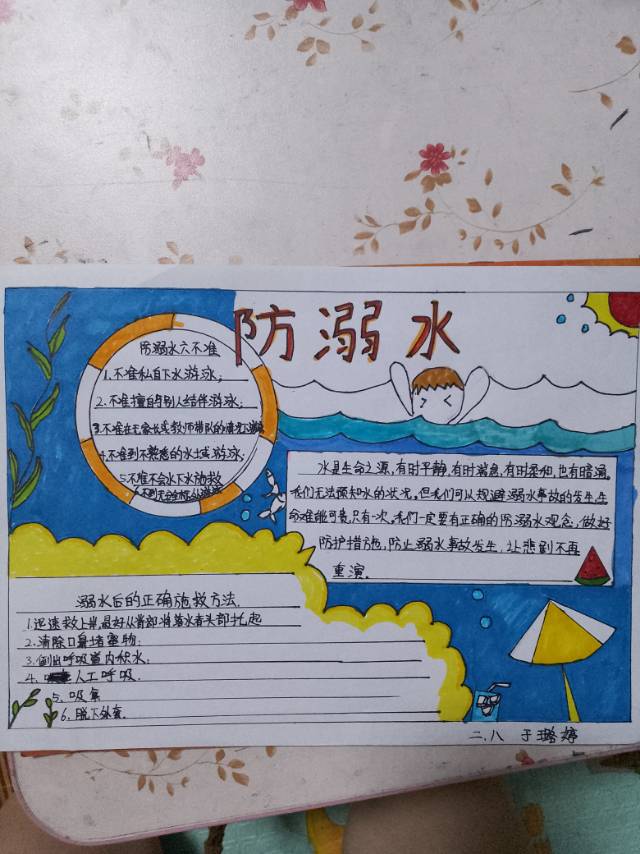 防溺水
防溺水六不准
1.不准私自下水游泳;
2.不准擅自与别人结伴游泳;
3.不准在无家长或教师带队的情况下游泳
4.不准到不熟悉的水域游泳
5.不准不会水下水施救
水是生命之源,有时平静,有时湍急,有时柔和,也有暗涌。
我们无法预知水的状况。但我们可以规避溺水事故的发生,生
命难能可贵,只有一次。我们一定要有正确的防溺水观念,做好
防护措施,防止溺水事故发生,让悲剧不再
重演.
溺水后的正确施救方法.
1.迅速救上岸,最好从背部将落水者头部托起
2.清除口鼻堵塞物;
3.倒出呼吸道内积水;
4.人工呼吸.
5.吸氧
6.脱下外套.
二.八 于璐婷